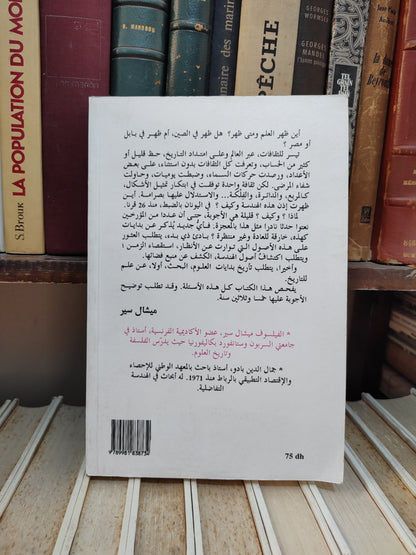 S. BROUK LA POPULATION DU MONDE
R. MANDROU
naire des marin
PÊCHE
GEORGES
WORMSER
GEORGES
MANDEL
أين ظهر العلم ومتى ظهر؟ هل ظهر في الصين، أم ظهر في بابل
أو مصر ؟
تيسر للثقافات، عبر العالم وعلى امتداد التاريخ، حظ قليل أو
كثير من الحساب، وتعرفت كل الثقافات بدون استثناء، على بعض
الأعداد، ورصدت حركات السماء، وضبطت يوميات، وحاولت
شفاء المرضى. لكن ثقافة واحدة توفقت في ابتكار تمثيل الأشكال،
كالمربع، والدائرة، والفلكة.... والاستدلال عليها بصرامة. أين
ظهرت إذن هذه الهندسة وكيف ؟ في اليونان بالضبط، منذ 26 قرنا.
لماذا ؟ وكيف ؟ قليلة هي الأجوبة، حتى أن عددا من المؤرخين
نعتوا حدثا نادرا مثل هذا بالمعجزة: فبأي جديد يُذكر عن بدايات
كهذه، خارقة للعادة وغير منتظرة ؟ بادئ ذي بدء، يتطلب العثور
على هذه الأصول التي توارت عن الأنظار، استقصاء الزمن ؛
ويتطلب اكتشاف أصول الهندسة، الكشف عن منبع فضائها.
وأخيرا، يتطلب تأريخ بدايات العلوم، البحث، أولا، عن علم
للتاريخ.
يفحص هذا الكتاب كل هذه الأسئلة. وقد تطلب توضيح
الأجوبة عليها خمسا وثلاثين سنة.
ميشال سير
* الفيلسوف ميشال سير، عضو الأكاديمية الفرنسية، أستاذ في
جامعتي السربون وستانفورد بكاليفورنيا حيث يدرّس الفلسفة
وتاريخ العلوم.
* جمال الدين بادو، أستاذ باحث بالمعهد الوطني للإحصاء
والاقتصاد التطبيقي بالرباط منذ 1971. له أبحاث في الهندسة
التفاضلية.
9789981838734
75 dh